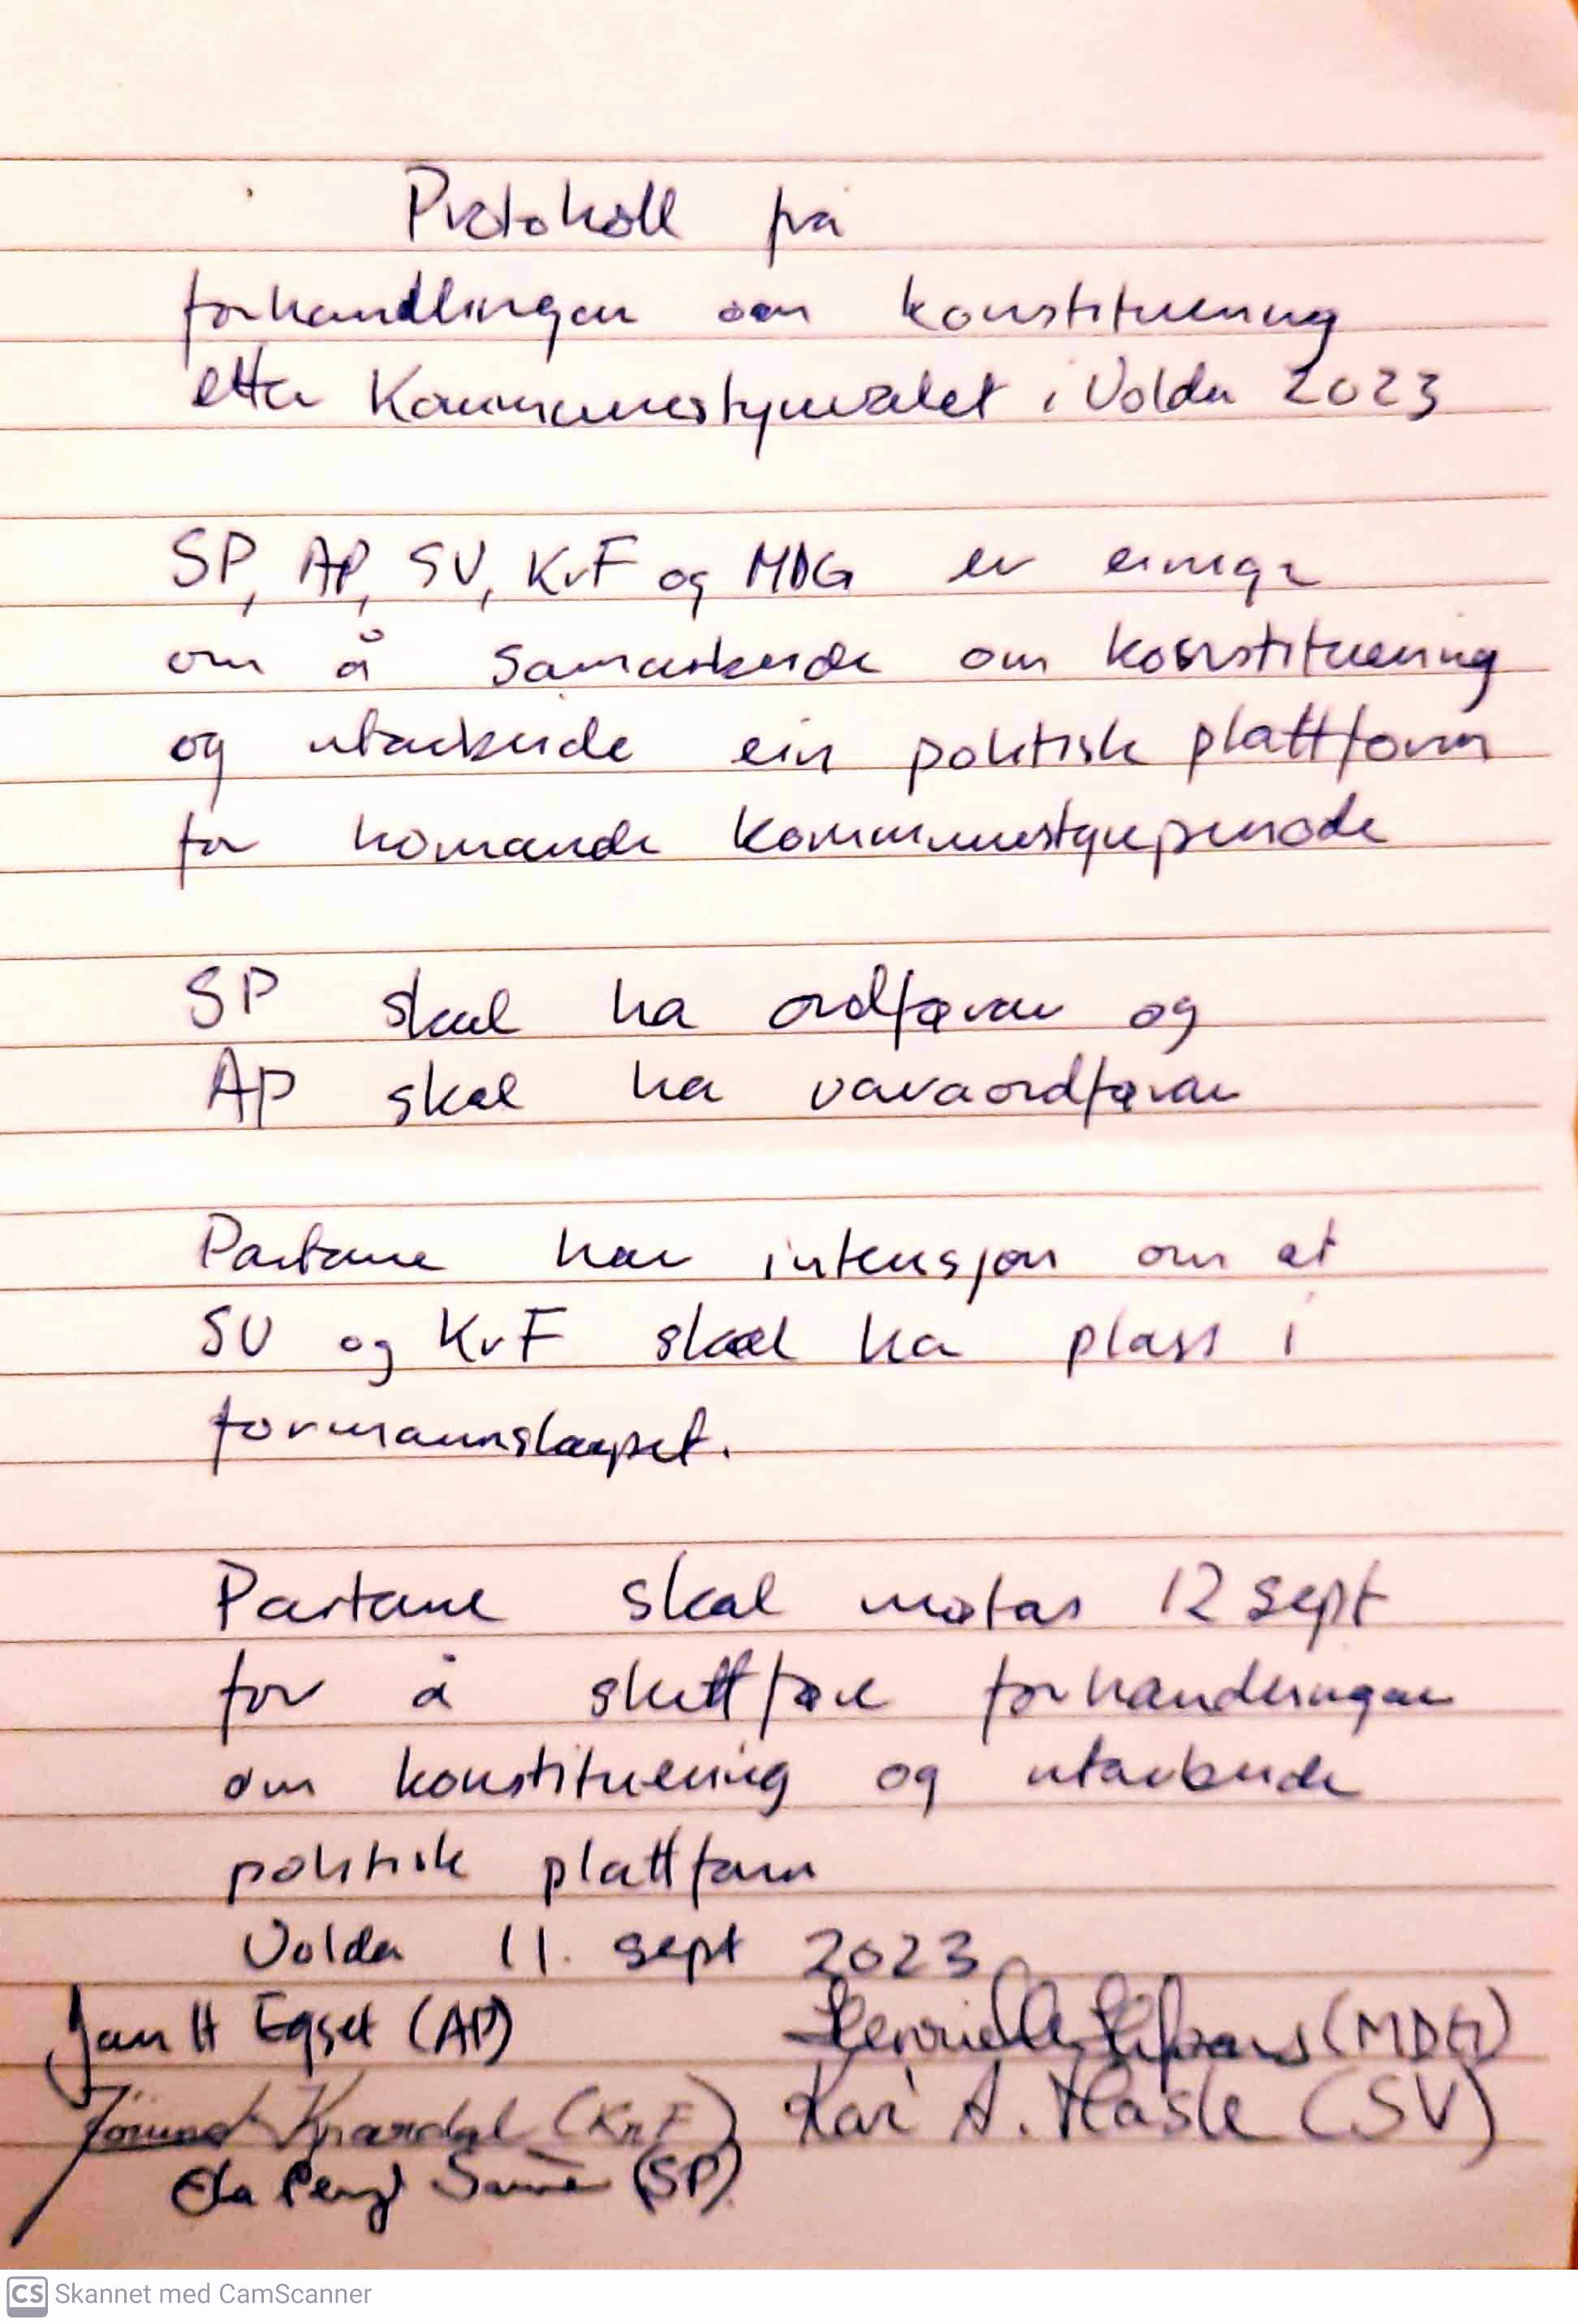 Protokoll frå
forhandlingar om konstituering
etter Kommunestyrevalet i Volda 2023
SP, AP, SV, KrF og MDG er einige
om å samarbeide om konstituering
og utarbeide ein politisk plattform
for komande kommunestyreperiode
SP skal ha ordførar og
AP skal ha varaordførar
Partane har intensjon om at
SV og KrF skal ha plass i
formannskapet.
Partane skal møtas 12 sept
for å sluttføre forhandlingar
om konstituering og utarbeide
politisk plattform
Volda 11. sept 2023
Jan H Egset (AP)
(MDG)
(KrF)
Kari A. Hasle (SV)
(SP)
CS Skannet med CamScanner